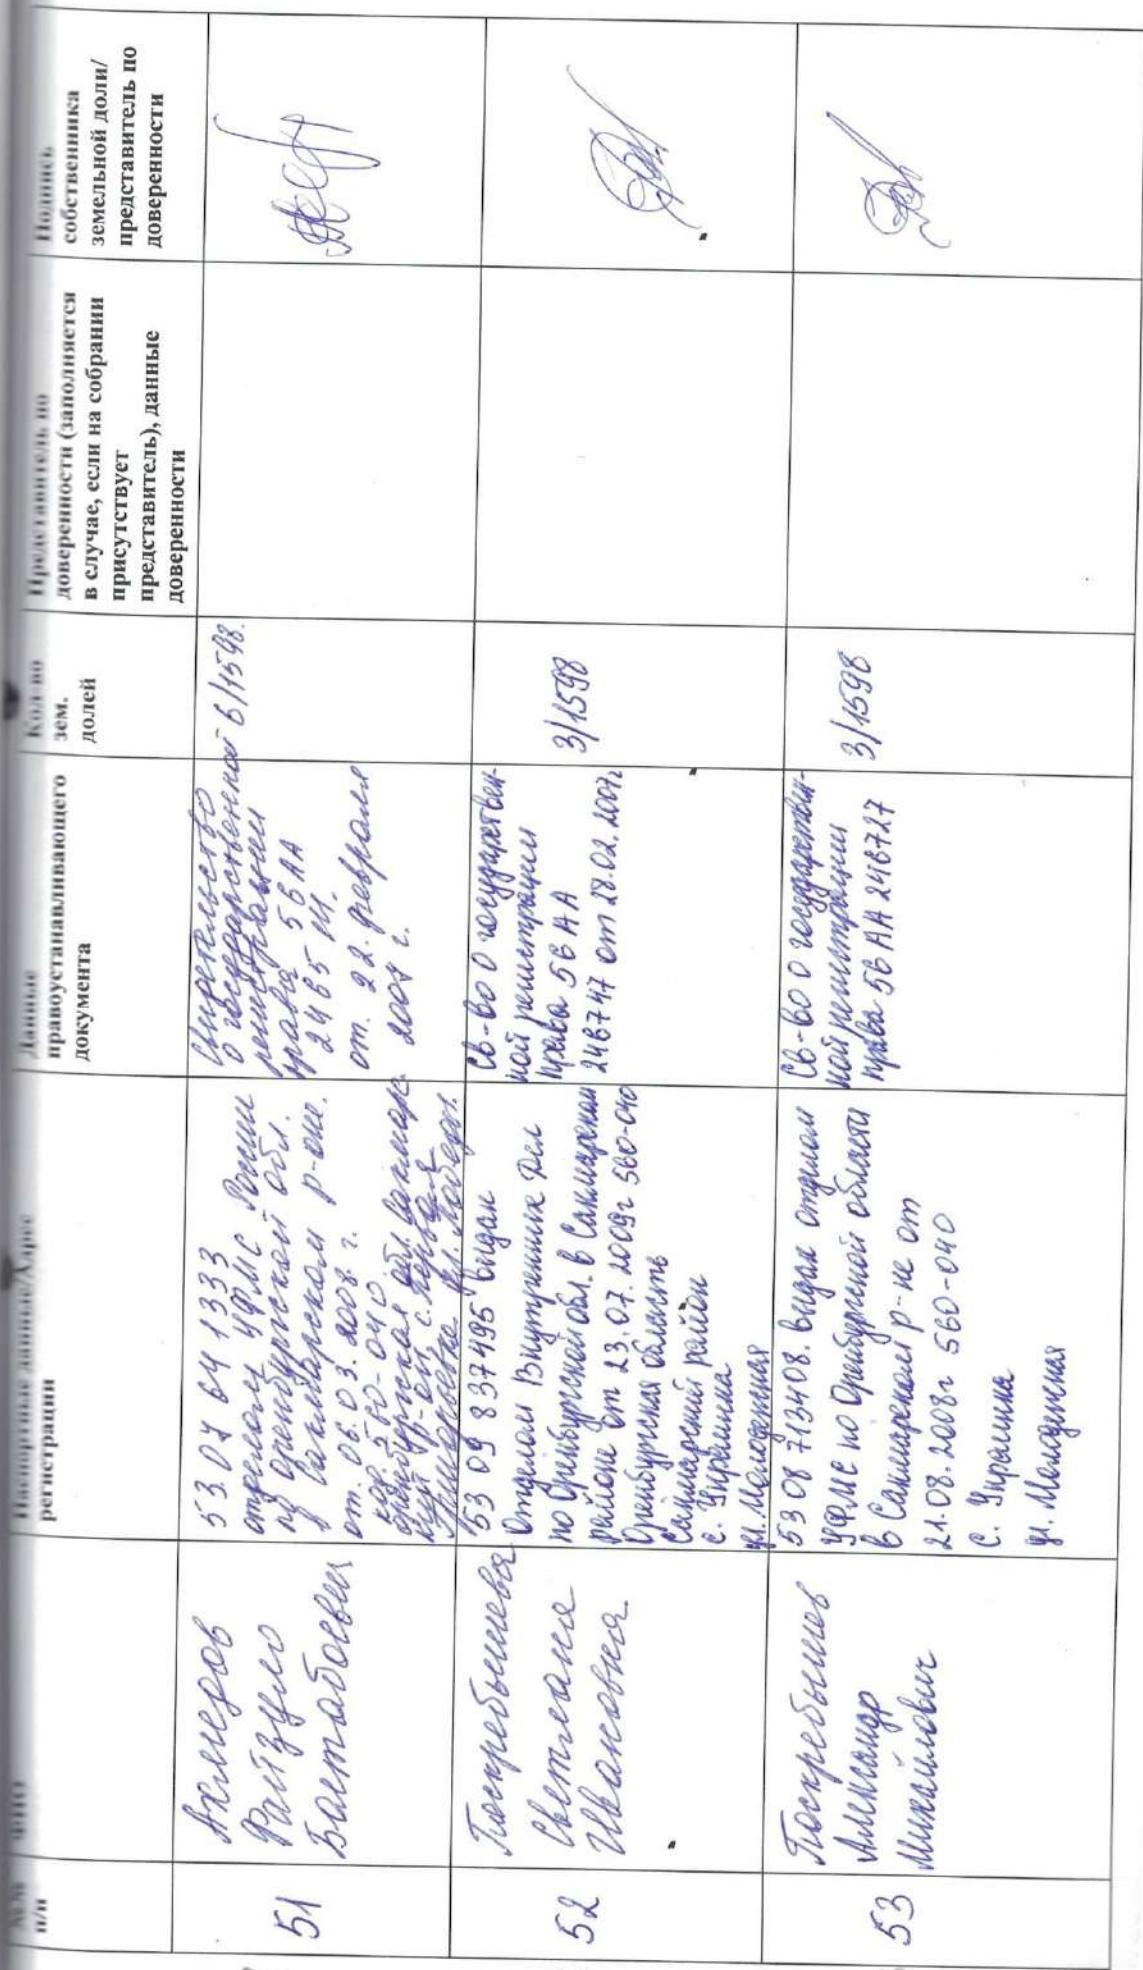 №№
п/п
ФИО
Паспортные данные/Адрес
регистрации
Данные
правоустанавливающего
документа
Кол-во
зем.
долей
Представитель по
доверенности (заполняется
в случае, если на собрании
присутствует
представитель), данные
доверенности
Подпись
собственника
земельной доли/
представитель по
доверенности
51
Ахмедов
Файзуло
Балтабоевич
53 07 641333
отделом УФМС России
по Оренбургской обл.
в Сакмарском р-оне.
от. 06.03.2008. г.
код 560-040
Оренбургская обл. Сакмарс
кий р-он, с.
ул.
Свидетельство
о государственной
регистрации
права 56 АА
2465
от. 22. февраля
2007 г.
6/1598.
52
Поскребышева
Светлана
Ивановна
53 09 837495 выдан
Отделом Внутренних Дел
по Оренбургской обл. в Сакмарском
районе от 23.07.2009г 560-040
Оренбургская область
Сакмарский район
с. Украинка
ул. Молодежная
Св-во о государствен-
ной регистрации
права 56 АА
246747 от 28.02.2007г
3/1598
53
Поскребышев
Александр
Михайлович
53 08 713408. выдан отделом
УФМС по Оренбургской области
в Сакмарском р-не от
21.08.2008г 560-040
с. Украинка
ул. Молодежная
Св-во о государствен-
ной регистрации
права 56 АА 246727
3/1598